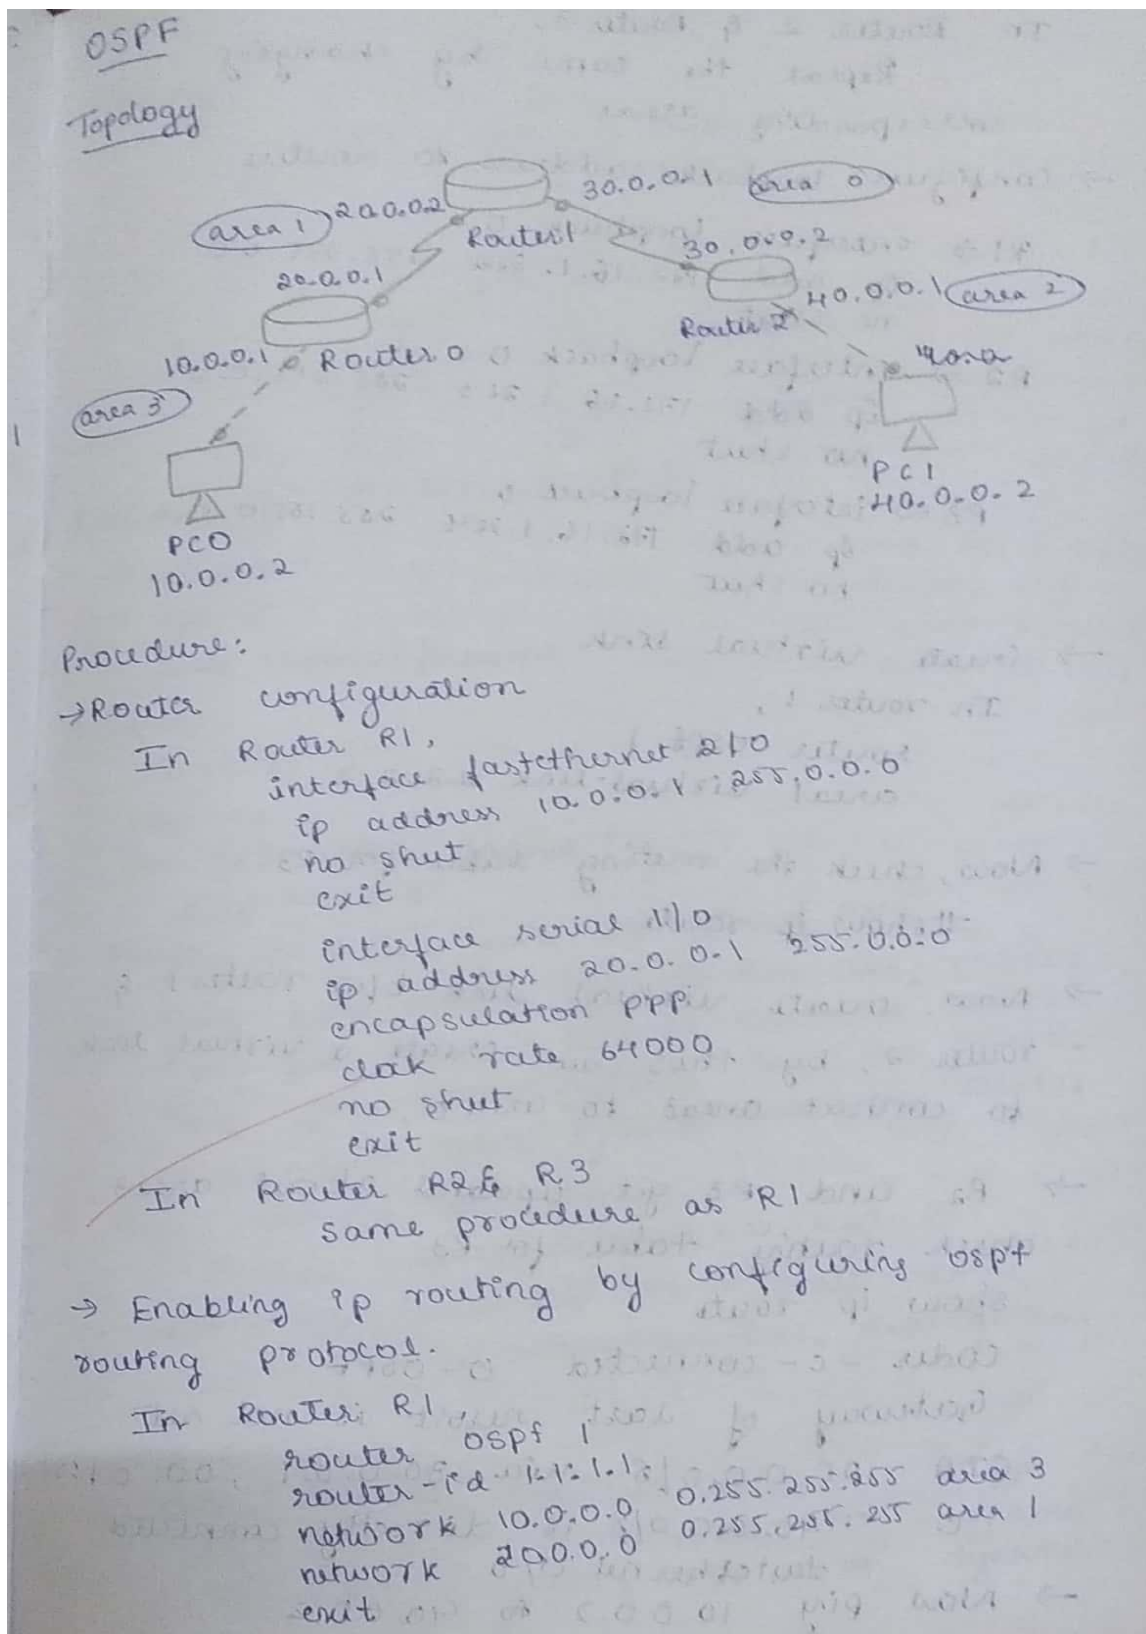 OSPF
Topology
30.0.0.1 area 0
area 1 20.0.0.2
Router 1
30.0.0.2
20.0.0.1
40.0.0.1 area 2
Router 2
10.0.0.1 Router 0
area 3
PC1
40.0.0.2
PC0
10.0.0.2
Procedure:
→ Router configuration
In Router R1,
interface fastethernet 2/0
ip address 10.0.0.1 255.0.0.0
no shut
exit
interface serial 1/0
ip address 20.0.0.1 255.0.0.0
encapsulation ppp
clock rate 64000
no shut
exit
In Router R2 & R3
same procedure as R1
→ Enabling ip routing by configuring ospf
routing protocol.
In Router R1,
router ospf 1
router-id 1.1.1.1
network 10.0.0.0 0.255.255.255 area 3
network 20.0.0.0 0.255.255.255 area 1
exit